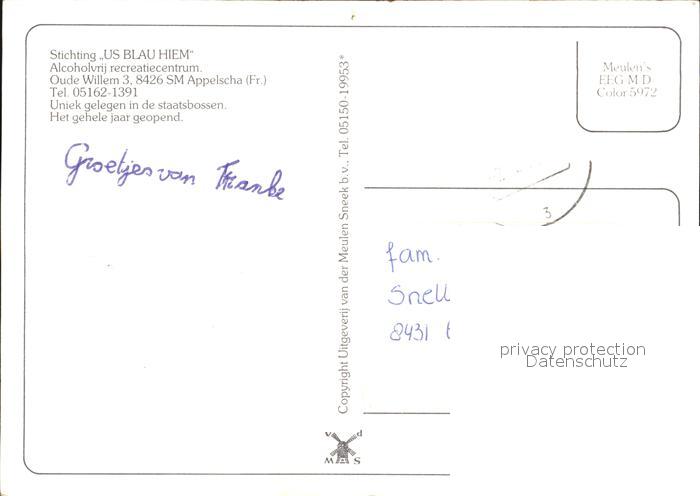 Stichting „US BLAU HIEM"
Alcoholvrij recreatiecentrum.
Oude Willem 3, 8426 SM Appelscha (Fr.)
Tel. 05162-1391
Uniek gelegen in de staatsbossen.
Het gehele jaar geopend.
Groetjes van Franke
Copyright Uitgeverij van der Meulen Sneek b.v., Tel. 05150-19953*
Meulen's
EEG M D
Color 5972
3
fam.
Snell
8431
privacy protection
Datenschutz
v d
M S